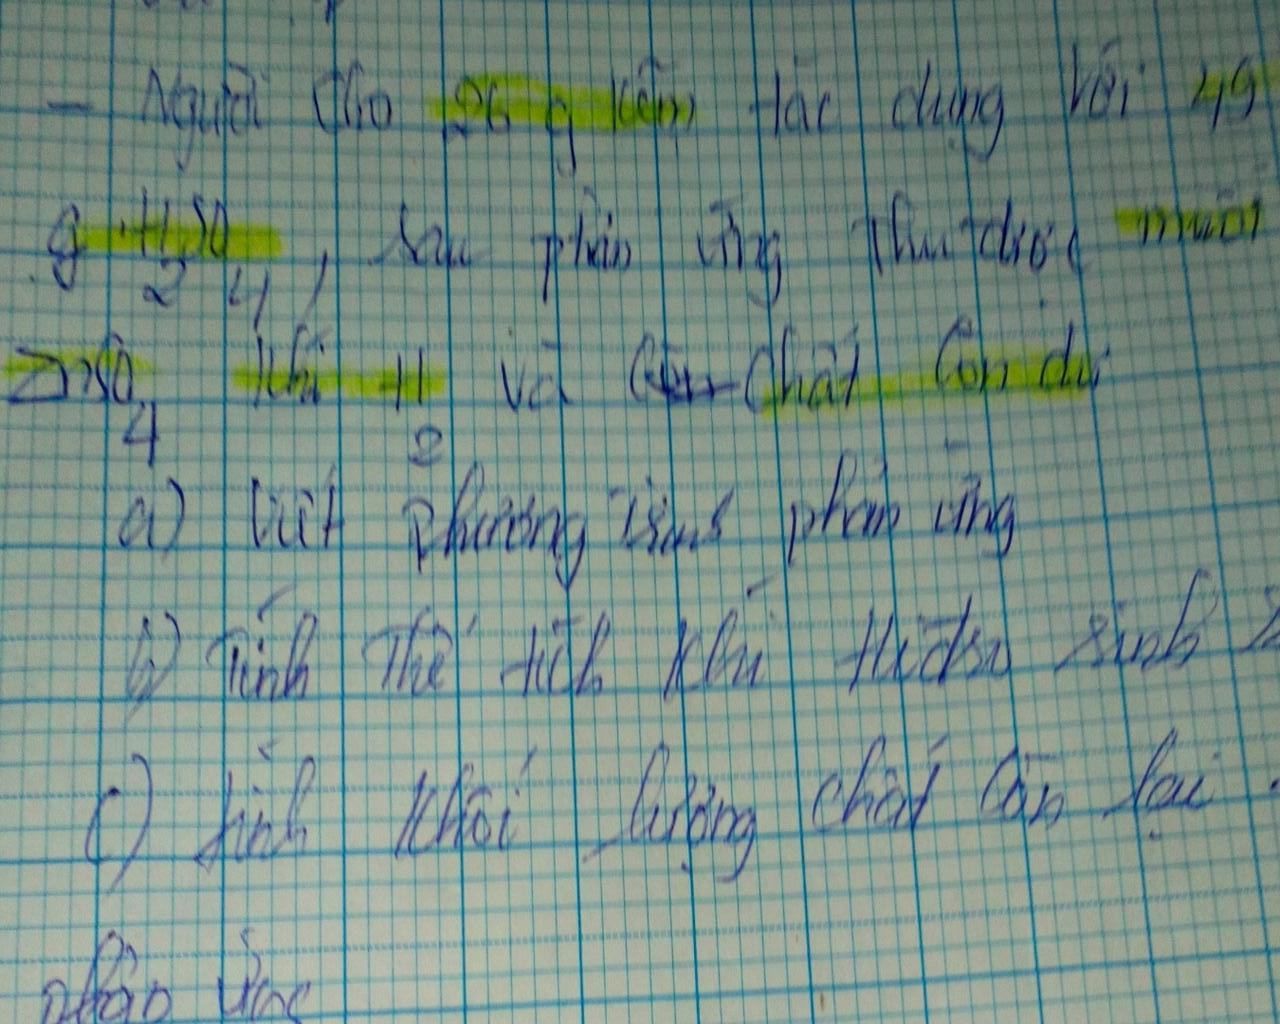 - Người cho 26 g kẽm tác dụng với 49
g H2SO4, sau phản ứng thu được muối
ZnSO4 khí H2 và chất còn dư
a) Viết phương trình phản ứng
b) Tính thể tích khí Hiđro sinh
c) tính khối lượng chất còn lại
phản ứng